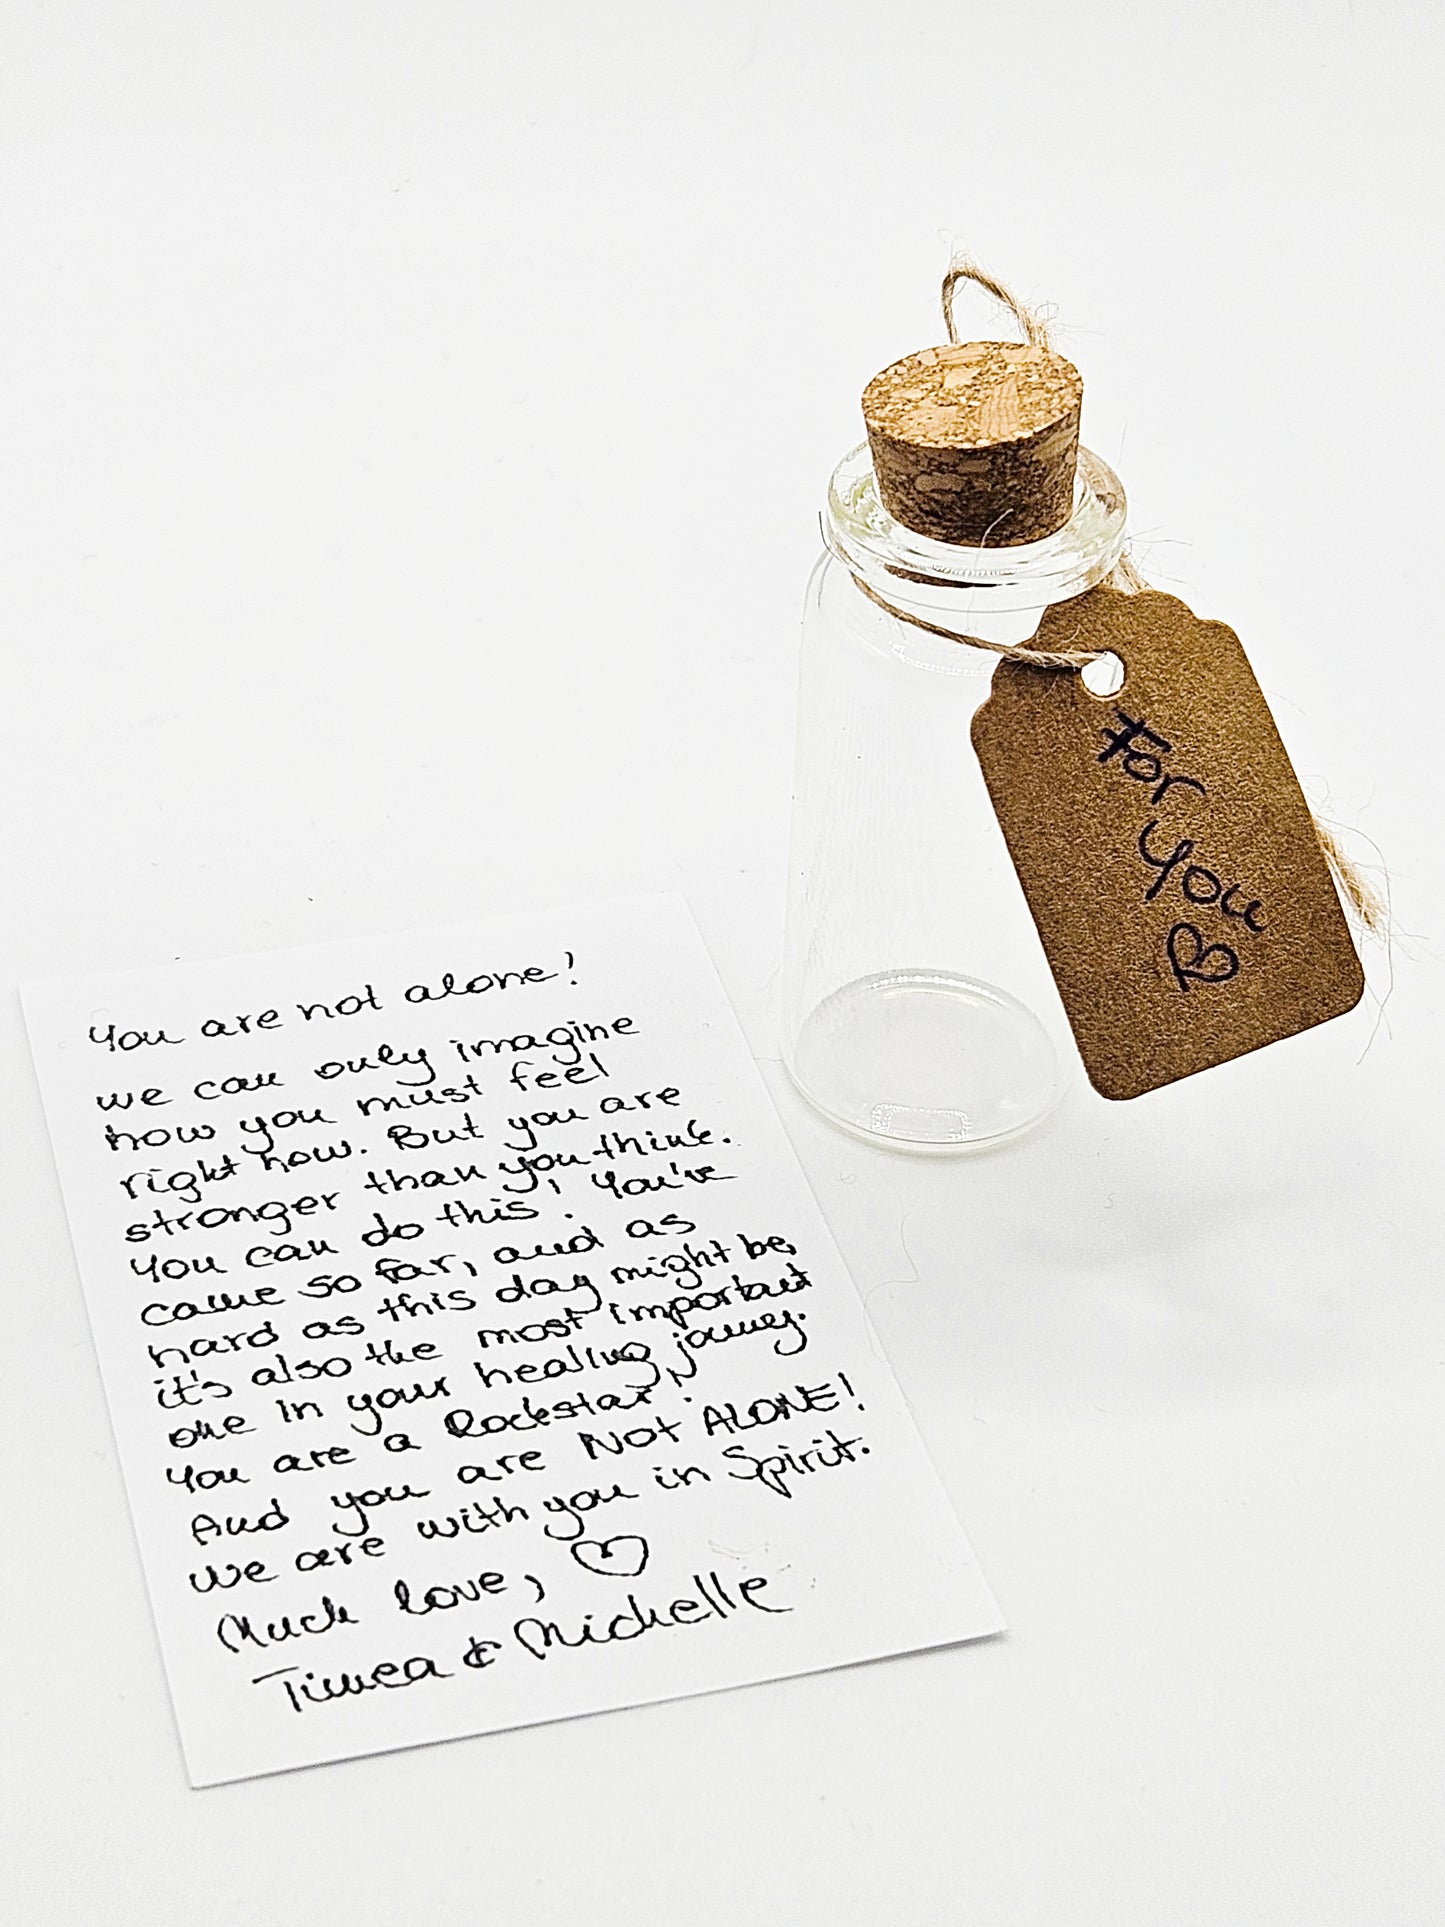 You are not alone!
we can only imagine
how you must feel
right now. But you are
stronger than you think.
You can do this! You've
came so far, and as
hard as this day might be,
it's also the most important
one in your healing journey.
You are a Rockstar!
And you are NOT ALONE!
We are with you in Spirit.
Much love, ♡
Timea & Michelle
For
You
♡